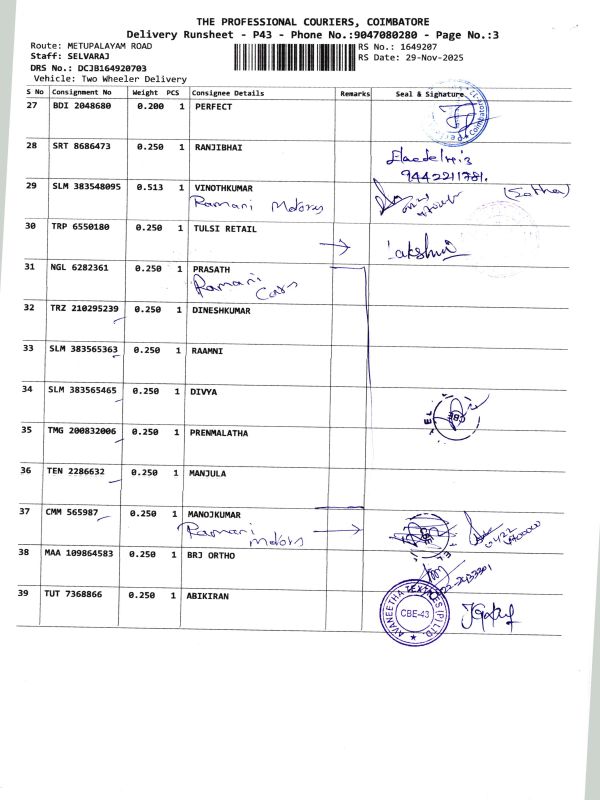 THE PROFESSIONAL COURIERS, COIMBATORE
Delivery Runsheet - P43 - Phone No.:9047080280 - Page No.:3
Route: METUPALAYAM ROAD
RS No.: 1649207
Staff: SELVARAJ
RS Date: 29-Nov-2025
DRS No.: DCJB164920703
Vehicle: Two Wheeler Delivery
S No Consignment No Weight PCS Consignee Details Remarks Seal & Signature
27 BDI 2048680 0.200 1 PERFECT
28 SRT 8686473 0.250 1 RANJIBHAI
9442211781.
29 SLM 383548095 0.513 1 VINOTHKUMAR
Ramani Motors
30 TRP 6550180 0.250 1 TULSI RETAIL
31 NGL 6282361 0.250 1 PRASATH
Ramani
Cars
32 TRZ 210295239 0.250 1 DINESHKUMAR
33 SLM 383565363 0.250 1 RAAMNI
34 SLM 383565465 0.250 1 DIVYA
35 TMG 200832006 0.250 1 PRENMALATHA
36 TEN 2286632 0.250 1 MANJULA
37 CMM 565987 0.250 1 MANOJKUMAR
Ramani Motors
38 MAA 109864583 0.250 1 BRJ ORTHO
39 TUT 7368866 0.250 1 ABIKIRAN
AVANEETHA TEXTILES (P) LTD.
CBE-43